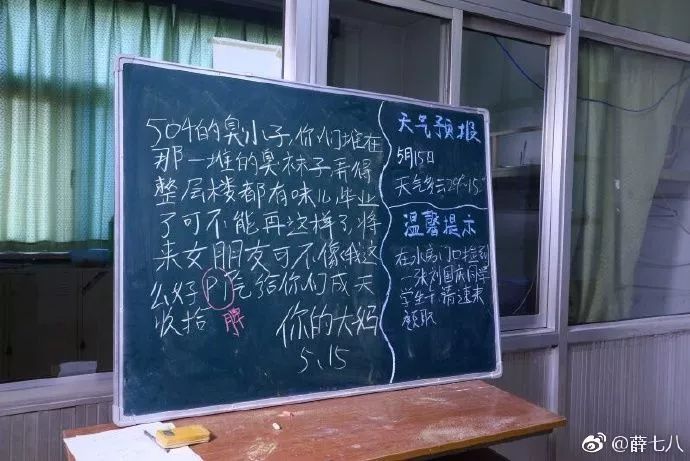 504的臭小子,你们堆在
那一堆的臭袜子弄得
整层楼都有味儿,毕业
了可不能再这样了,将
来女朋友可不像俄这
么好Pi气给你们成天
收拾
脾
你的大妈
5、15
天气预报
5月15日
天气多云29°~15°
温馨提示
在水房门口捡到
一张刘国庆同学
学生卡请速来
领取
@薛七八